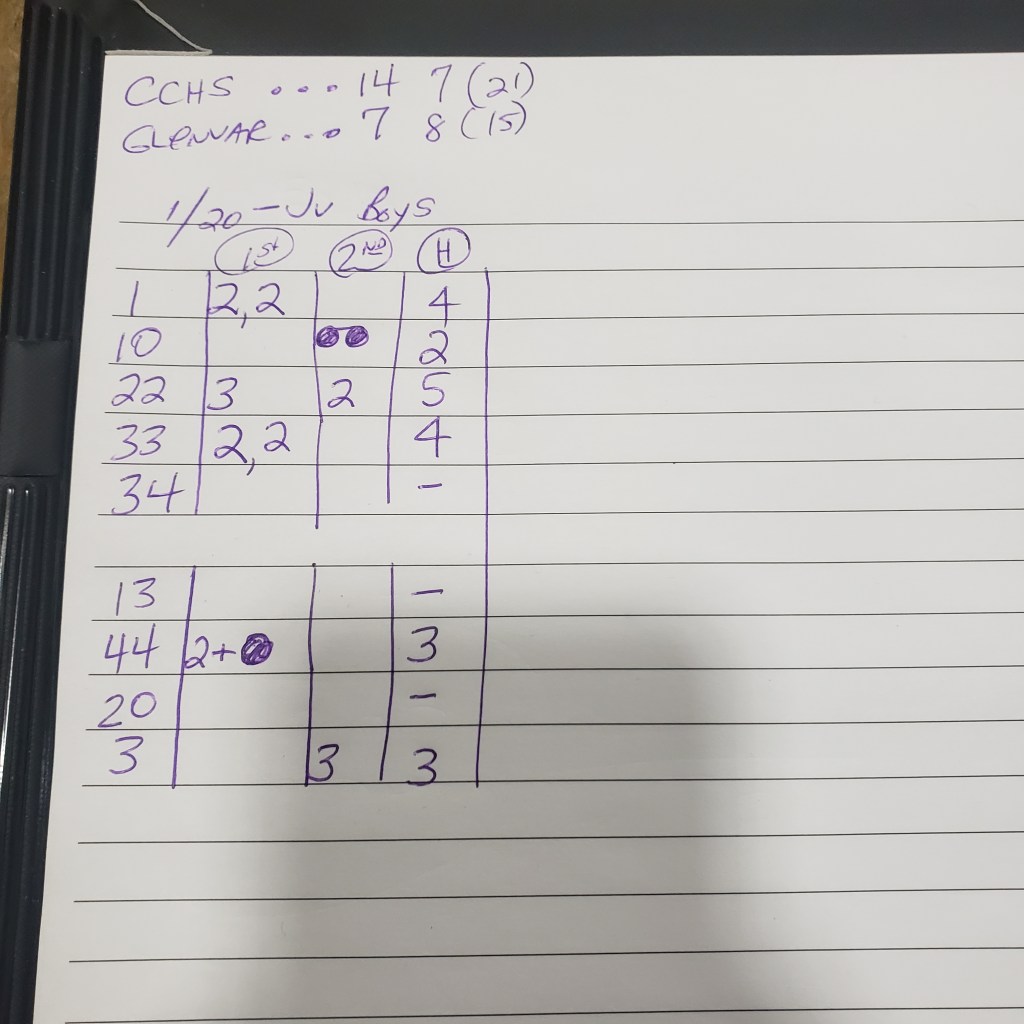 CCHS ... 14 7 (21)
GLENVAR ... 7 8 (15)
1/20 - JV Boys
1st 2ND H
1 2,2 4
10 ●● 2
22 3 2 5
33 2,2 4
34 -
13 -
44 2+● 3
20 -
3 3 3